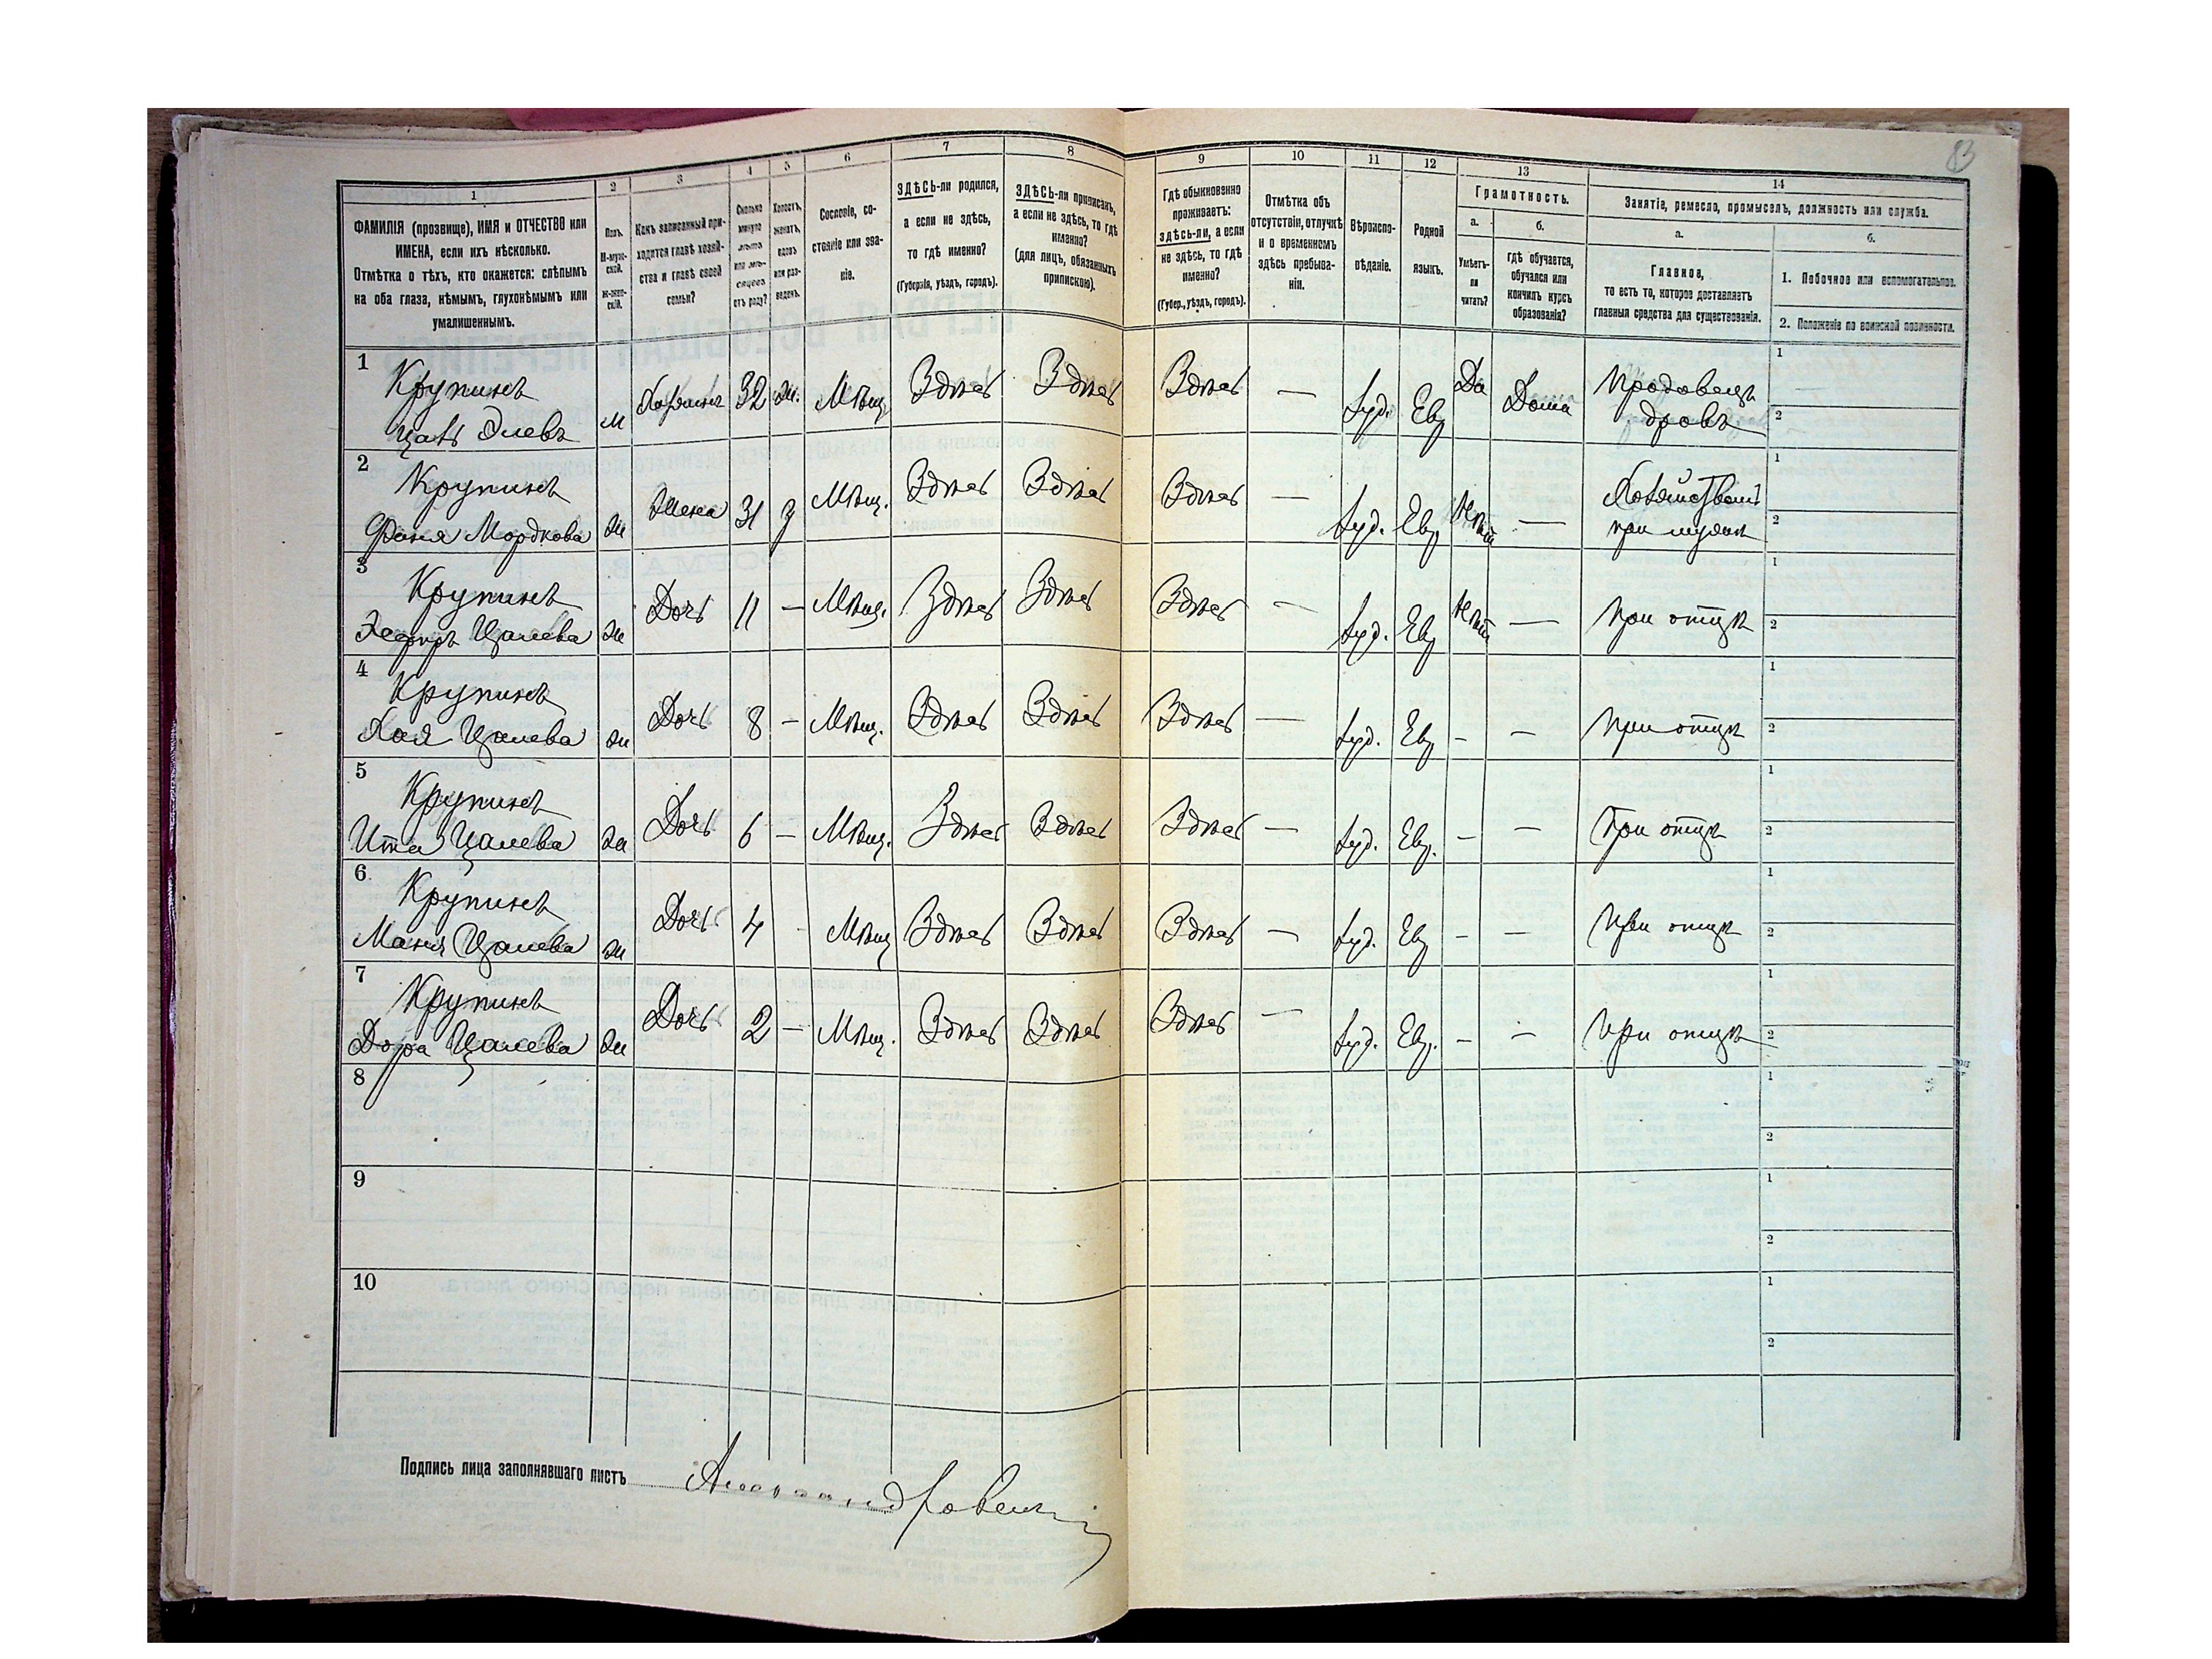 83
1 2 3 4 5 6 7 8 9 10 11 12 13 14
ФАМИЛІЯ (прозвище), ИМЯ и ОТЧЕСТВО или
ИМЕНА, если ихъ нѣсколько.
Отмѣтка о тѣхъ, кто окажется: слѣпымъ
на оба глаза, нѣмымъ, глухонѣмымъ или
умалишеннымъ.
Полъ.
М-муж-
ской.
Ж-жен-
скій.
Какъ записанный при-
ходится главѣ хозяй-
ства и главѣ своей
семьи?
Сколько
минуло
лѣтъ
или мѣ-
сяцевъ
отъ роду?
Холостъ,
женатъ,
вдовъ
или раз-
веденъ.
Сословіе, со-
стояніе или зва-
ніе.
ЗДѢСЬ-ли родился,
а если не здѣсь,
то гдѣ именно?
(Губернія, уѣздъ, городъ).
ЗДѢСЬ-ли приписанъ,
а если не здѣсь, то гдѣ
именно?
(для лицъ, обязанныхъ
припискою).
Гдѣ обыкновенно
проживаетъ:
здѣсь-ли, а если
не здѣсь, то гдѣ
именно?
(Губер., уѣздъ, городъ).
Отмѣтка объ
отсутствіи, отлучкѣ
и о временномъ
здѣсь пребыва-
ніи.
Вѣроиспо-
вѣданіе.
Родной
языкъ.
Грамотность.
а.
Умѣетъ-
ли
читать?
б.
гдѣ обучается,
обучался или
кончилъ курсъ
образованія?
Занятіе, ремесло, промыселъ, должность или служба.
а.
Главное,
то есть то, которое доставляетъ
главныя средства для существованія.
б.
1. Побочное или вспомогательное.
2. Положеніе по воинской повинности.
1 Крупинъ м Хозяинъ 32 ж. Мѣщ. Здѣсь Здѣсь Здѣсь — Іуд. Евр Да Дома Продавецъ 1
дровъ 2
2 Крупинъ ж Жена 31 з Мѣщ. Здѣсь Здѣсь Здѣсь — Іуд. Евр Нѣтъ — 1
Фаня Мордкова при мужѣ 2
3 Крупинъ ж Дочь 11 — Мѣщ. Здѣсь Здѣсь Здѣсь — Іуд. Евр Нѣтъ — при отцѣ 1
Эсфирь Цалева 2
4 Крупинъ ж Дочь 8 — Мѣщ. Здѣсь Здѣсь Здѣсь — Іуд. Евр — — при отцѣ 1
Хая Цалева 2
5 Крупинъ ж Дочь 6 — Мѣщ. Здѣсь Здѣсь Здѣсь — Іуд. Евр. — — При отцѣ 1
Ита Цалева 2
6 Крупинъ ж Дочь 4 - Мѣщ Здѣсь Здѣсь Здѣсь — Іуд. Евр — — При отцѣ 1
Маня Цалева 2
7 Крупинъ ж Дочь 2 — Мѣщ. Здѣсь Здѣсь Здѣсь — Іуд. Евр. — — При отцѣ 1
Дора Цалева 2
8 1
2
9 1
2
10 1
2
Подпись лица заполнявшаго листъ